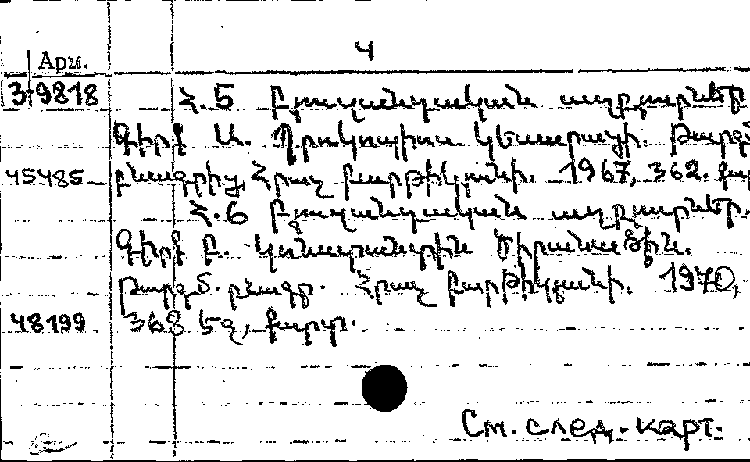 4
Арм.
3-9818 Հ.5 Բյուզանդական աղբյուրներ
Գիրք Ա. Պրոկոպիոս Կեսարացի. Թարգմ
45485 բնագրից Հրաչ Բարթիկյանի. 1967, 362. քար
Հ.6 Բյուզանդական աղբյուրներ.
Գիրք Բ. Կոնստանտին Ծիրանածին.
Թարգմ. բնագր. Հրաչ Բարթիկյանի. 1970,
48199 368 եջ, քարտ.
См. след. карт.